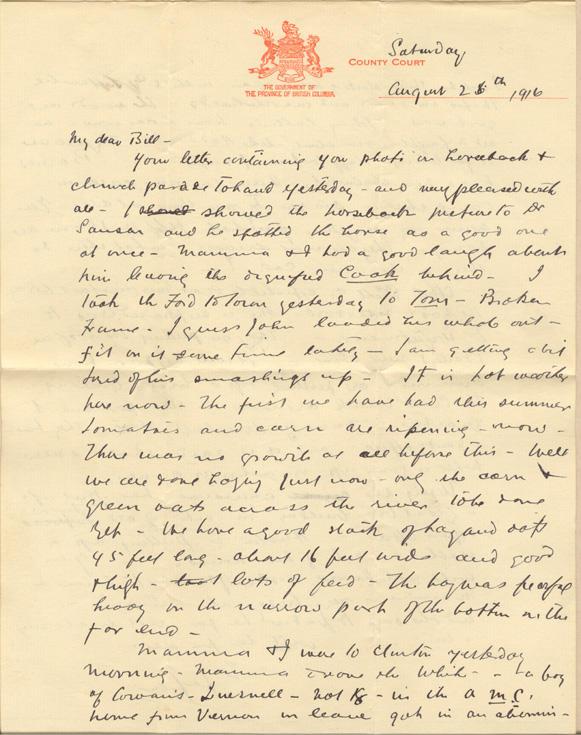 THE GOVERNMENT OF
THE PROVINCE OF BRITISH COLUMBIA
COUNTY COURT
Saturday
August 26th, 1916
My dear Bill -
Your letter containing you photo on horseback &
church parade to hand yesterday - and very pleased with
all - I showed the horseback picture to Dr
Sanson and he spotted the horse as a good one
at once - Mamma & I had a good laugh about
him leaving the dignified Cook behind - I
took the Ford to town yesterday to Tom - Broken
Frame - I guess John loaded his whole out-
fit on it some time lately - I am getting a bit
tired of his smashings up - It is hot weather
here now - the first we have had this summer
tomatoes and corn are ripening - now -
There was no growth at all before this - Well
we are done haying just now - only the corn &
green oats across the river to be done
yet - We have a good stack of hay and oats
45 feet long - about 16 feet wide and good
& high - lots of feed - The hay was
heavy on the narrow part of the bottom on the
far end -
Mamma & I were to Clinton yesterday
morning - Mamma drove the White - - a boy
of Cowan's - - not - in the A M C,
home from Vernon on leave got in an